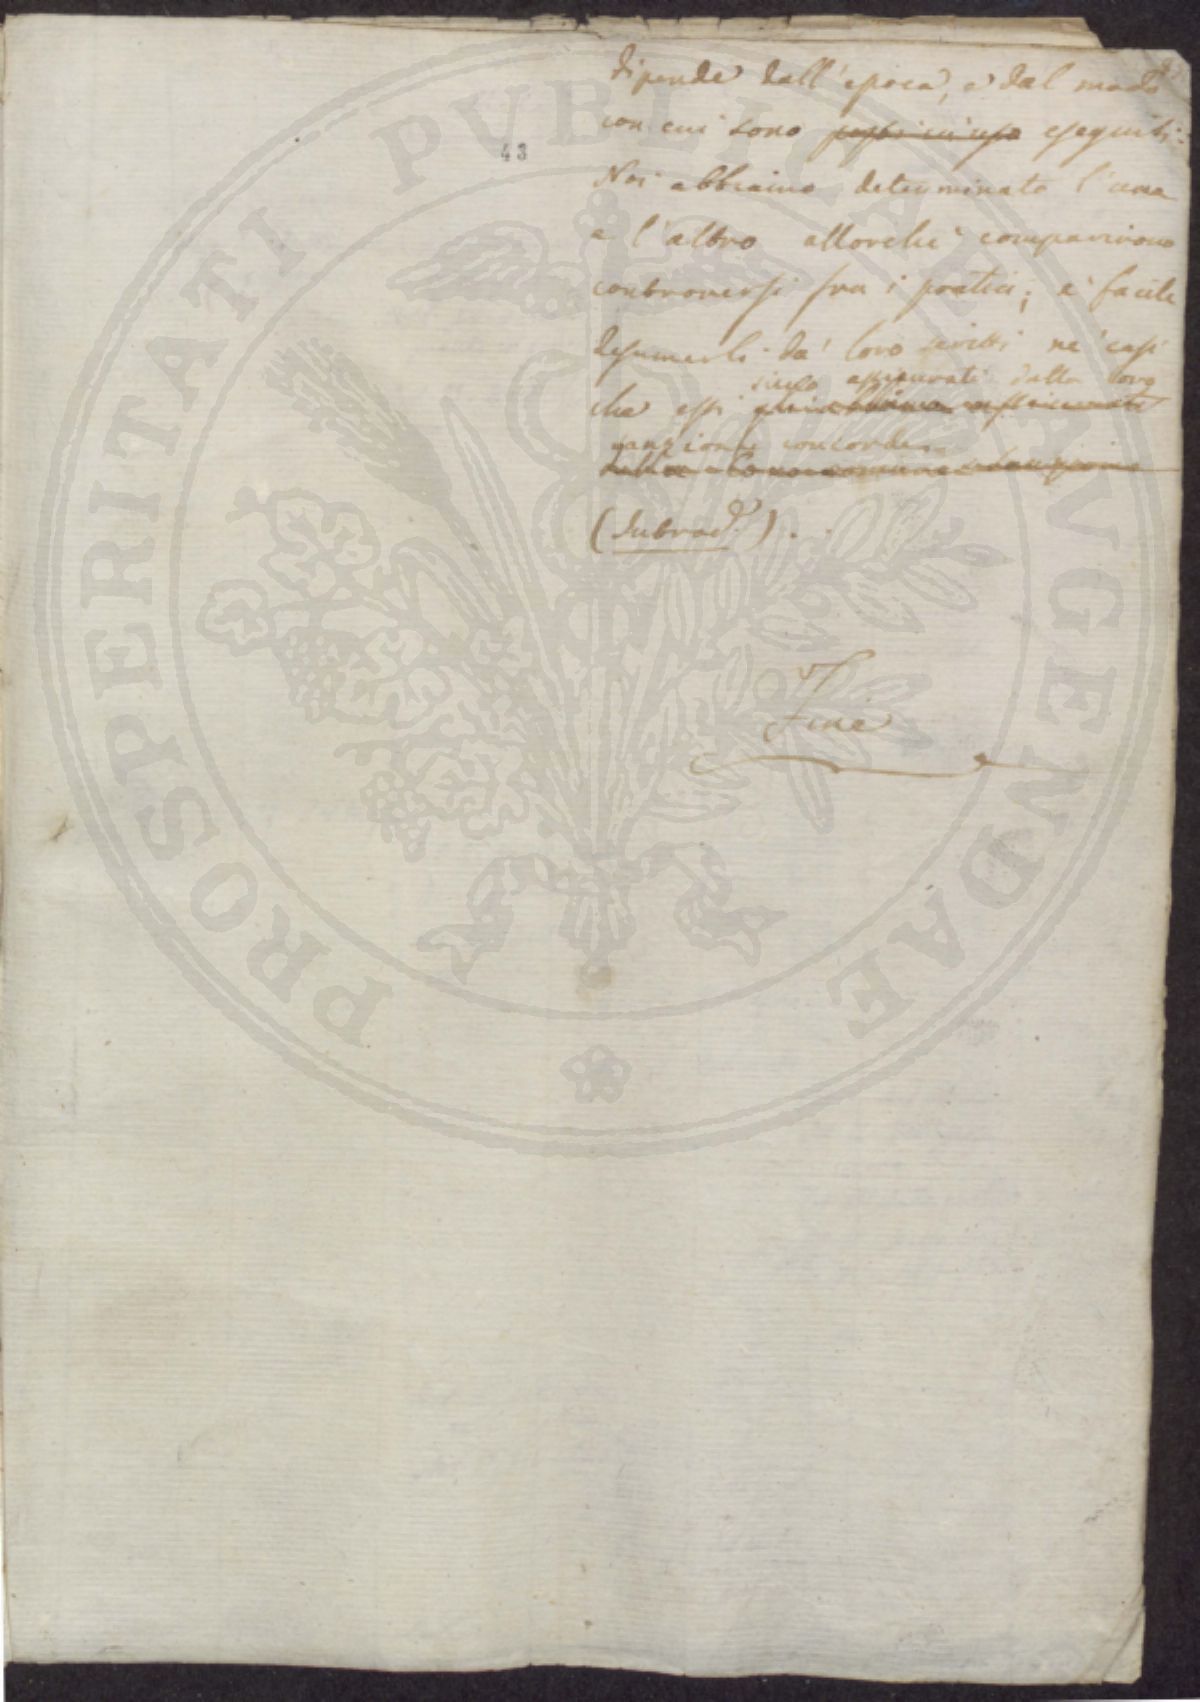 dipende dall'epoca, e dal modo
con cui sono eseguiti.
43
Noi abbiamo determinato l'una
e l'altro allorchè comparirono
controversi fra i pratici; è facile
desumerli da' loro scritti ne' casi
siano assicurati dalla loro
che essi
sanzione concorde.
(Subrad.)
Fine
PROSPERITATI PUBLICAE AUGENDAE